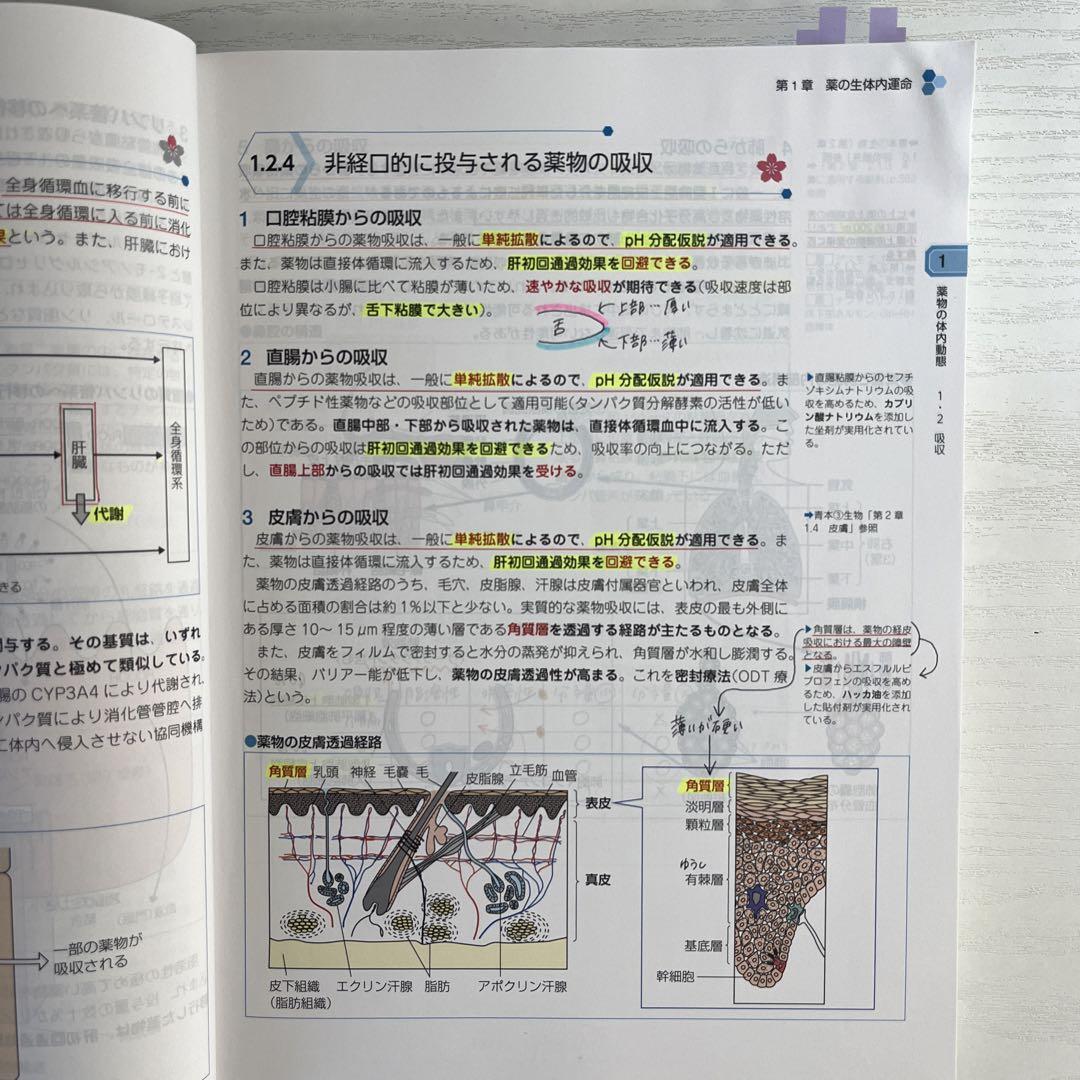 第1章 薬の生体内運命
全身循環血に移行する前に
ては全身循環に入る前に消化
果という。また、肝臓におけ
肝臓
全身循環系
代謝
きる
関与する。その基質は、いずれ
パク質と極めて類似している。
腸のCYP3A4により代謝され、
パク質により消化管管腔へ排
に体内へ侵入させない協同機構
一部の薬物が
吸収される
1.2.4 非経口的に投与される薬物の吸収
1 口腔粘膜からの吸収
口腔粘膜からの薬物吸収は、一般に単純拡散によるので、pH分配仮説が適用できる。
また、薬物は直接体循環に流入するため、肝初回通過効果を回避できる。
口腔粘膜は小腸に比べて粘膜が薄いため、速やかな吸収が期待できる(吸収速度は部
位により異なるが、舌下粘膜で大きい)。
舌
上部…厚い
下部…薄い
2 直腸からの吸収
直腸からの薬物吸収は、一般に単純拡散によるので、pH分配仮説が適用できる。ま
た、ペプチド性薬物などの吸収部位として適用可能(タンパク質分解酵素の活性が低い
ため)である。直腸中部・下部から吸収された薬物は、直接体循環血中に流入する。こ
の部位からの吸収は肝初回通過効果を回避できるため、吸収率の向上につながる。ただ
し、直腸上部からの吸収では肝初回通過効果を受ける。
3 皮膚からの吸収
皮膚からの薬物吸収は、一般に単純拡散によるので、pH分配仮説が適用できる。ま
た、薬物は直接体循環に流入するため、肝初回通過効果を回避できる。
薬物の皮膚透過経路のうち、毛穴、皮脂腺、汗腺は皮膚付属器官といわれ、皮膚全体
に占める面積の割合は約1%以下と少ない。実質的な薬物吸収には、表皮の最も外側に
ある厚さ10〜15μm程度の薄い層である角質層を透過する経路が主たるものとなる。
また、皮膚をフィルムで密封すると水分の蒸発が抑えられ、角質層が水和し膨潤する。
その結果、バリアー能が低下し、薬物の皮膚透過性が高まる。これを密封療法(ODT療
法)という。
薄いが硬い
●薬物の皮膚透過経路
角質層 乳頭 神経 毛嚢 毛 皮脂腺 立毛筋 血管
表皮
真皮
皮下組織
(脂肪組織)
エクリン汗腺 脂肪 アポクリン汗腺
角質層
淡明層
顆粒層
ゆうし
有棘層
基底層
幹細胞
1
薬物の体内動態
1・2 吸収
▶直腸粘膜からのセフチ
ゾキシムナトリウムの吸
収を高めるため、カプリ
ン酸ナトリウムを添加し
た坐剤が実用化されてい
る。
➡青本③生物「第2章
1.4 皮膚」参照
▶角質層は、薬物の経皮
吸収における最大の障壁
となる。
▶皮膚からエスフルルビ
プロフェンの吸収を高め
るため、ハッカ油を添加
した貼付剤が実用化され
ている。